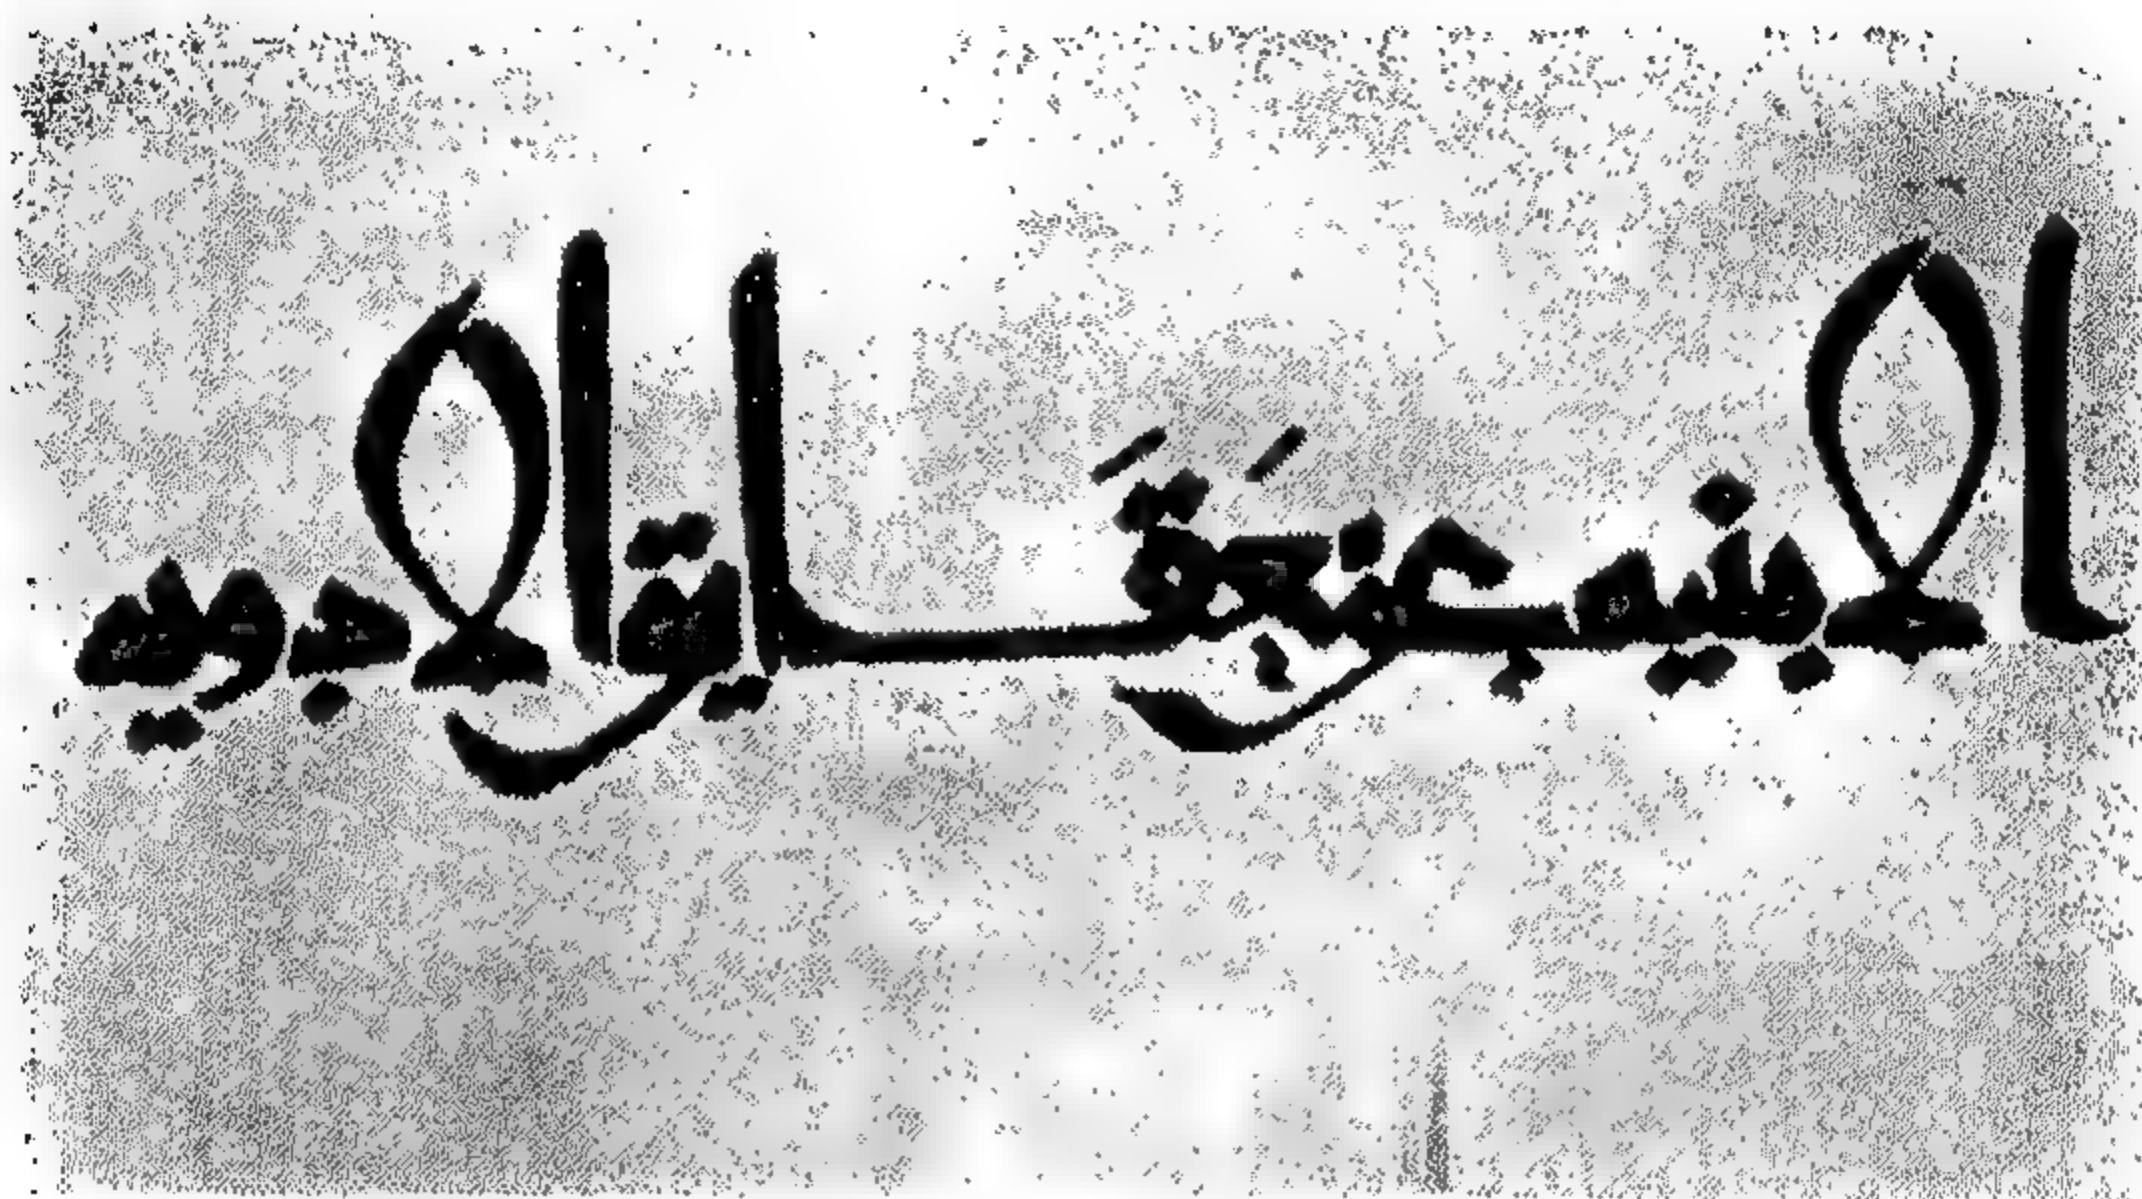 الابنيه عن حقايق الادويه